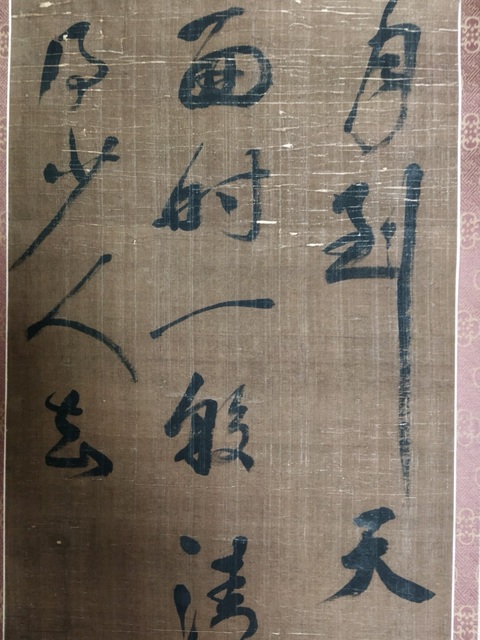 月到天
面時一般清
得少人知